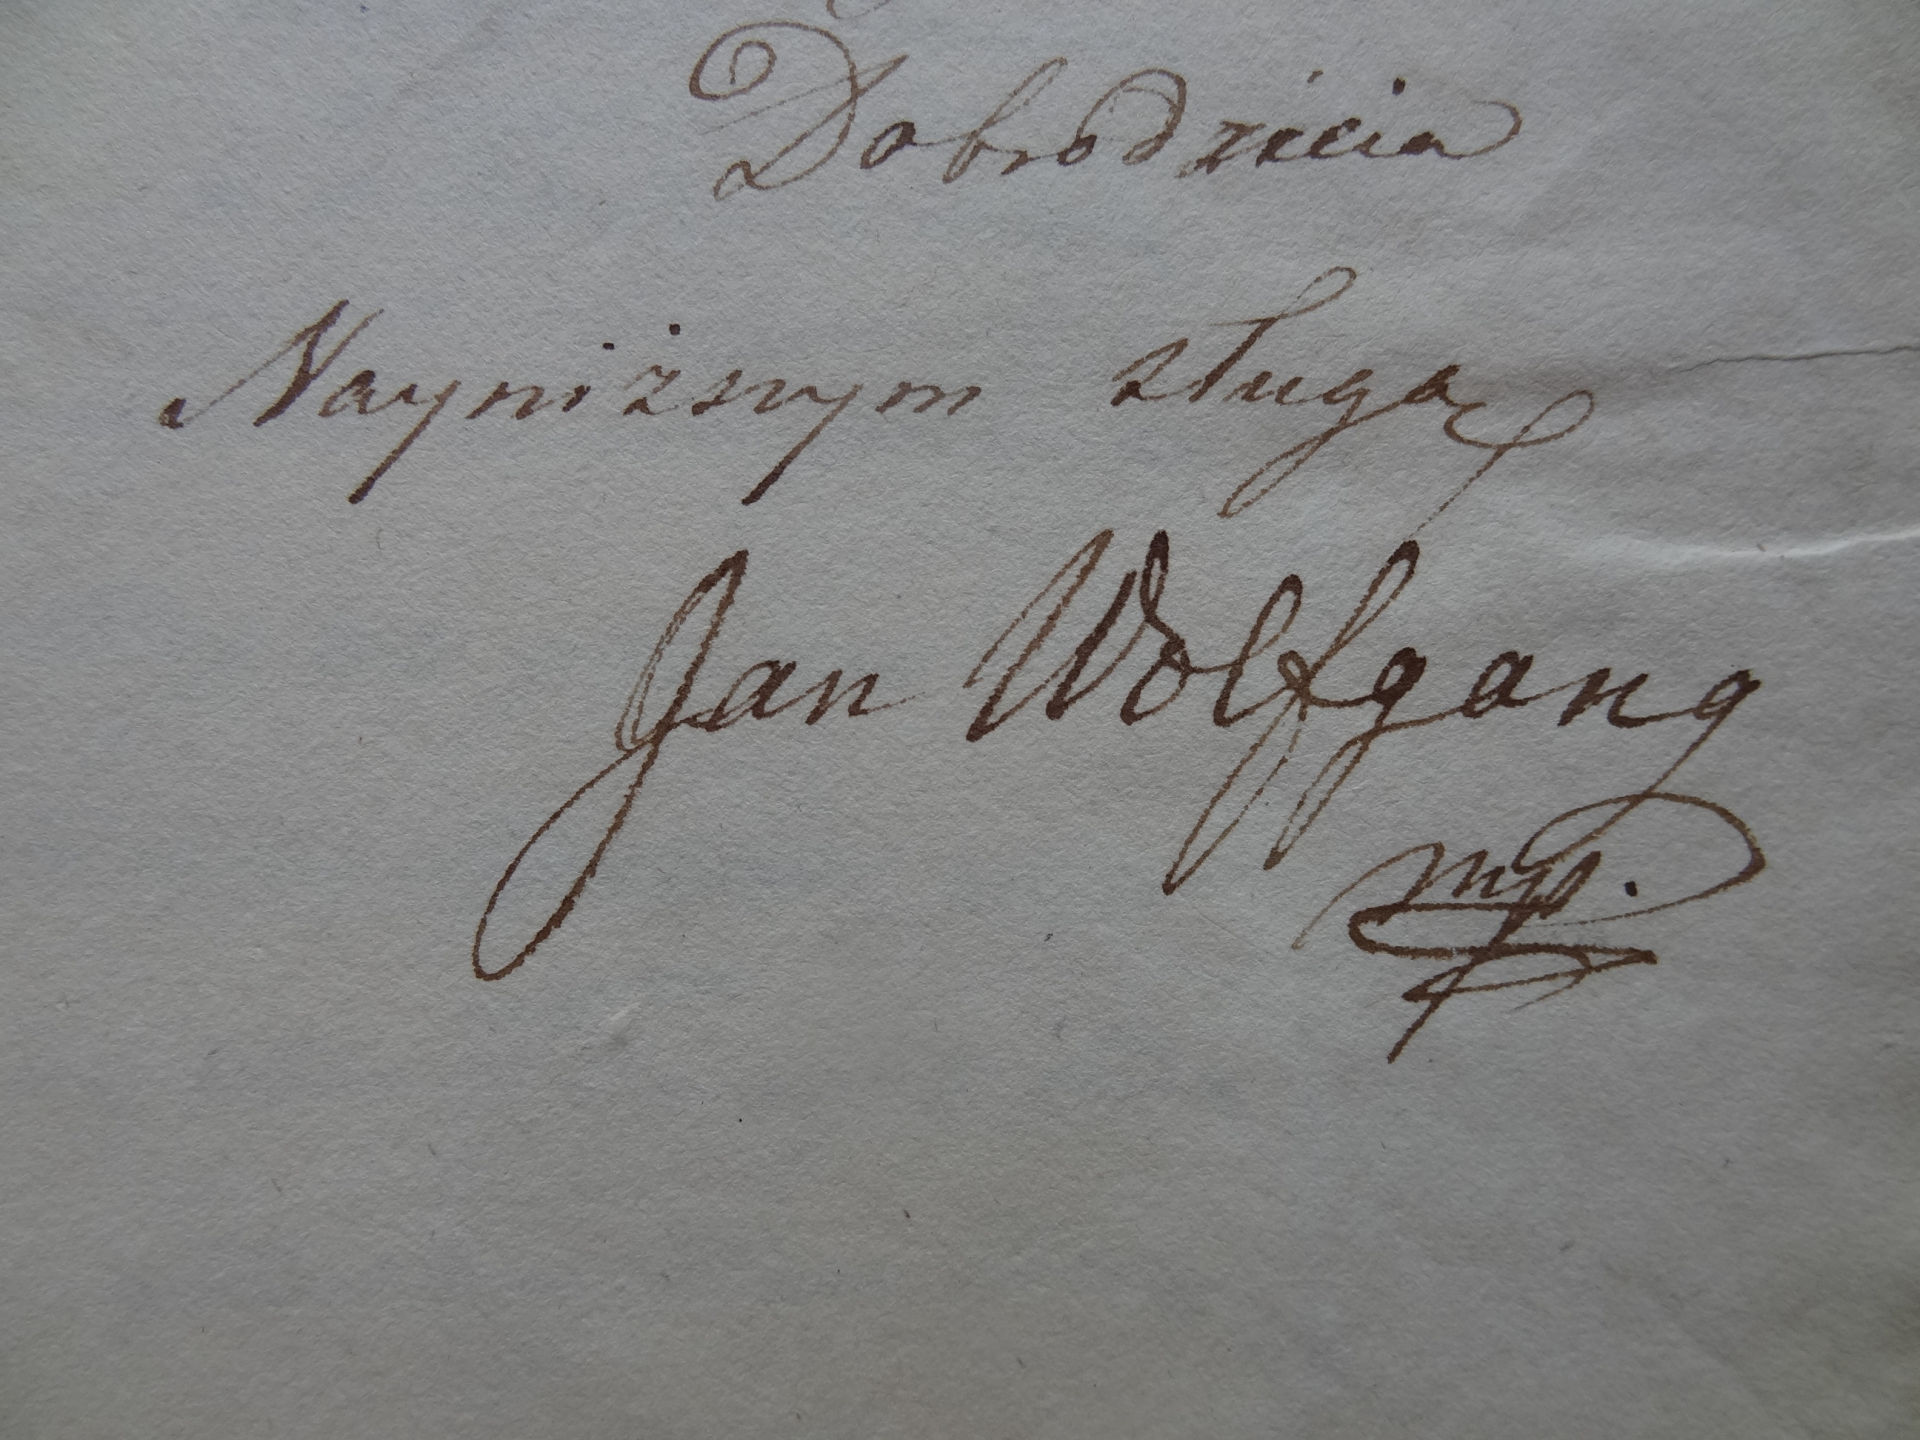 Dobrodzieia
Nayniższym sługą
Jan Wolfgang
mp.